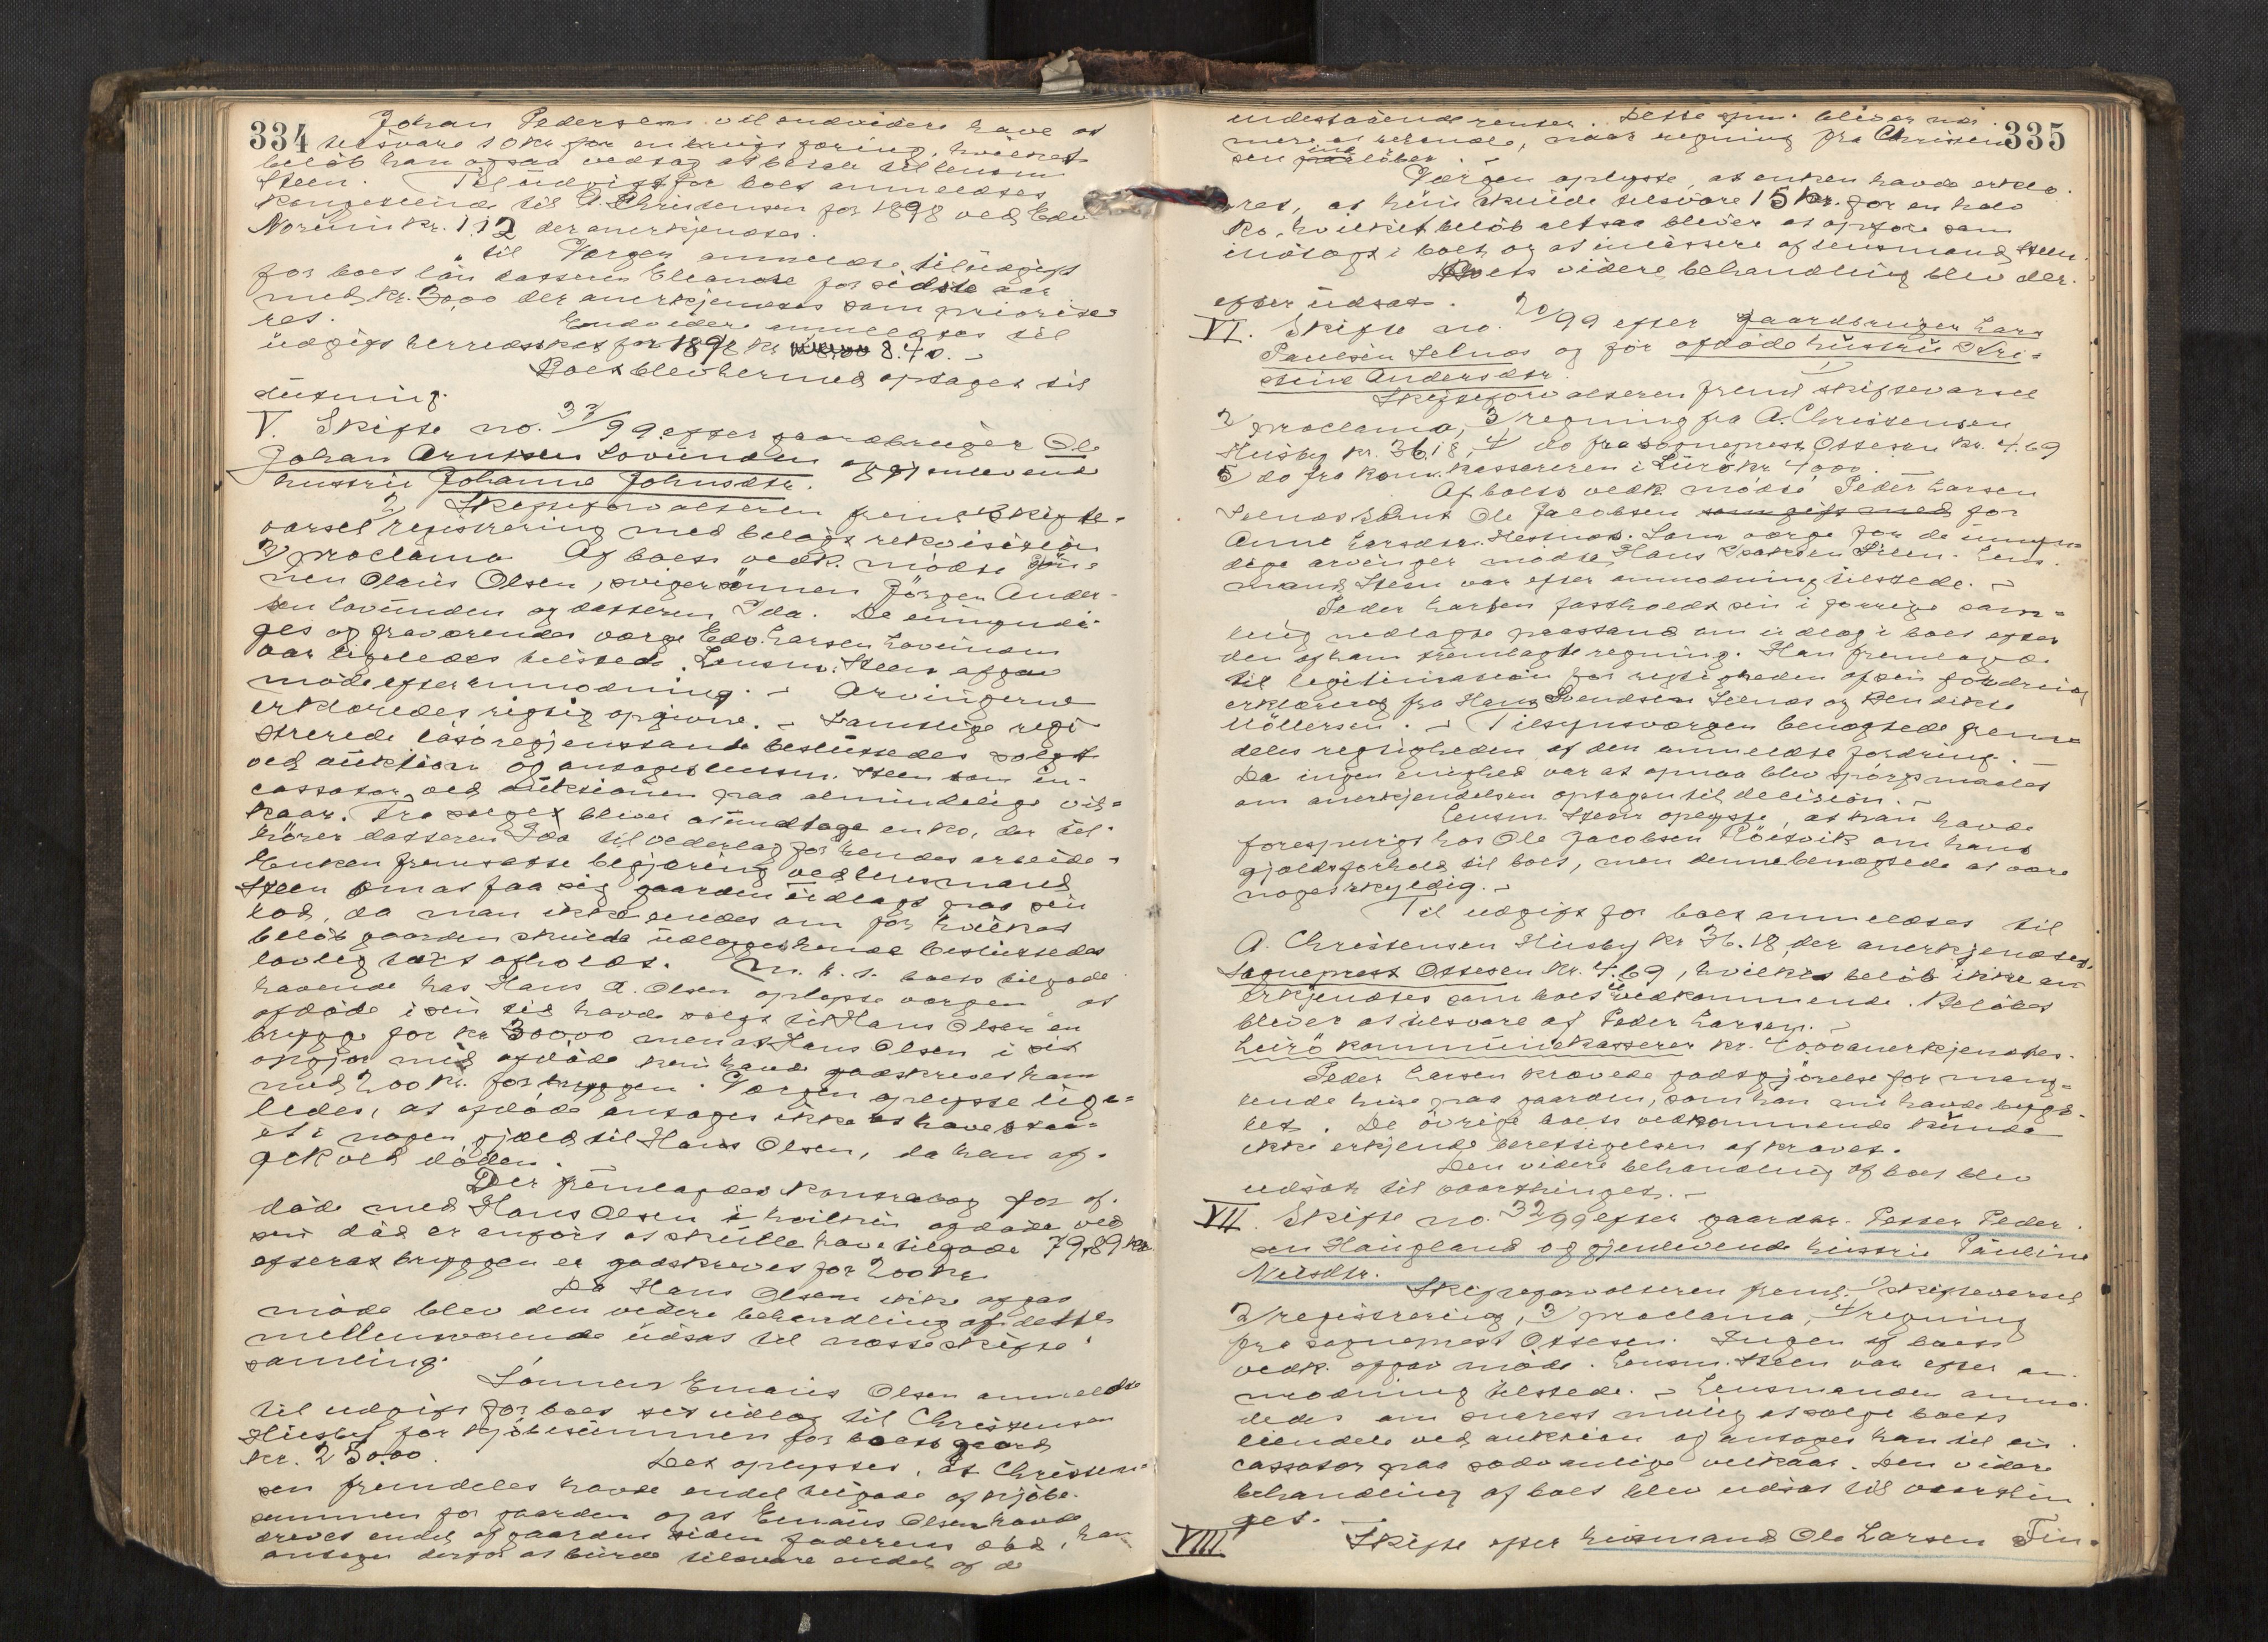 334
Johan Pedersen vil endvidere have at
tilsvare 10 kr for en brugt gjøring, hvilket
beløb han ogsaa vedtog at betale til lensm
Steen. Til udgift for boet anmeldtes
til A. Christensen for 1898 ved Edv
Norum kr. 112 der anerkjendtes.
til Værgen anmeldte til udgift
for boet løn datteren Eleanore for sidste aar
med kr. 30,00 der anerkjendtes som priorite
ret. Endvidere anmeldtes til
udgift herredsskat for 1898 kr 8.40. -
Boet blev hermed optaget til
slutning.
V. Skifte no. 32/99 efter gaardbruger Ole
Johan Arntsen Lovunden og gjenlevende
hustru Johanna Johnsdtr.
Skifteforvalteren freml 1) skifte-
varsel 2) registrering med belagt rekvisition
3) proclama. Af boets vedk. mødte søn-
nen Olaus Olsen, svigersønnen Jørgen Ander-
sen Lovunden og datteren Ida. De umyndi-
ges og fraværendes værge Edv. Larsen Lovunden
var ligeledes tilstede. Lensm. Steen afgav
møde efter anmodning. - Arvingerne
erklæredes rigtig opgivne. - Samtlige regi-
strerede løsøregjenstande besluttedes solgt
ved auktion og antoges lensm. Steen som in-
cassator ved auktionen paa almindelige vil-
kaar. Fra salget bliver at undtage en ko, der til-
hører datteren Ida til vederlag for hendes arbeide -
Enken fremsatte begjæring ved lensmand
Steen om at faa sig gaarden udlagt paa sin
lod, da man ikke enedes om for hvilket
beløb gaarden skulde udlægges hende besluttedes
lovlig taxt afholdt. M. h. t. boets tilgode
havende hos Hans A. Olsen oplyste værgen at
afdøde i sin tid havde solgt til Hans Olsen en
brygge for kr 300,00 men at Hans Olsen i sit
opgjør med afdøde kun havde godskrevet ham
med 200 kr. for bryggen. Værgen oplyste lige-
ledes, at afdøde antoges ikke at have staa-
et i nogen gjæld til Hans Olsen, da han af-
gik ved døden.
Der fremlagdes kontrabog for af-
døde med Hans Olsen i hvilken afdøde ved
sin død er anført at skulle have tilgode 79,89 kr
efter at bryggen er godskrevet for 200 kr
Da Hans Olsen ikke afgav
møde blev den videre behandling af dette
mellemværende udsat til næste skifte-
samling.
Sønnen Emaus Olsen anmeldte
til udgift for boet sit udlæg til Christensen
Husby for kjøbesummen for boets gaard
kr. 250.00. Det oplystes, at Christen-
sen fremdeles havde endel tilgode af kjøbe-
summen for gaarden og at Emaus Olsen havde
drevet endel af gaarden siden faderens død, han
antages derfor at burde tilsvare endel af de
335
endestaaende renter. Dette spm. bliver nær-
mere at behandle, naar regning fra Christen
sen indløber.
Værgen oplyste, at enken havde erklæ-
ret, at hun skulde tilsvare 15 kr. for en halv
ko, hvilket beløb altsaa bliver at opføre som
indtægt i boet og at incassere af lensmand Steen.
Boets videre behandling blev der-
efter udsat.
VI. Skifte no. 20/99 efter gaardbruger Lars
Paulsen Selnes og før afdøde hustru Kri-
stine Andersdtr.
Skifteforvalteren freml 1) skiftevarsel
2) proclama, 3) regning fra A. Christensen
Husby kr. 36.18, 4) do fra sogneprest Ottesen kr. 4.69
5) do fra kom. kassereren i Lurø kr. 4000.
Af boets vedk. mødte Peder Larsen
Selnes samt Ole Jacobsen som gift med for
Anne Larsdtr. Hestnes. Som værge for de umyn-
dige arvinger mødte Hans Steen. Lens-
mand Steen var efter anmodning tilstede. -
Peder Larsen fastholdt sin i forrige sam-
ling nedlagte paastand om udlæg i boet efter
den af ham fremlagte regning. Han fremlagde
til legitimation for rigtigheden af sin fordring
erklæring fra Hans Svendsen Selnes og Bendikte
Møllersen. - Tilsynsværgen benægtede frem-
deles rigtigheden af den anmeldte fordring. -
Da ingen enighed var at opnaa blev spørgsmaalet
om anerkjendelsen optaget til decision. -
Lensm. Steen oplyste, at han havde
forespurgt hos Ole Jacobsen Röitvik om hans
gjældsforhold til boet, men denne benægtede at være
noget skyldig. -
Til udgift for boet anmeldtes til
A. Christensen Husby kr 36.18, der anerkjendtes.
Sogneprest Ottesen kr. 4.69, hvilket beløb ikke an
erkjendtes som boet uvedkommende. Beløbet
bliver at tilsvare af Peder Larsen. -
Lurö kommunekasserer kr. 4000 anerkjendtes.
Peder Larsen krævede godtgjørelse for mang-
lende huse paa gaarden, som han nu havde byg-
get. De övrige boets vedkommende kunde
ikke erkjende berettigelsen af kravet.
Den videre behandling af boet blev
udsat til vaarthinget. -
VII. Skifte no. 32/99 efter gaardbr. Petter Peder-
sen Haugland og gjenlevende hustru Pauline
Nilsdtr.
Skifteforvalteren freml. 1) skiftevarsel
2) registrering, 3) proclama, 4) regning
fra sogneprest Ottesen. Ingen af boets
vedk. afgav møde. Lensm. Steen var efter an-
modning tilstede. - Lensmanden anmo-
dedes om snarest mulig at sælge boets
eiendele ved auktion og antoges han til in-
cassator paa sædvanlige vilkaar. Den videre
behandling af boet blev udsat til vaarthin-
get. -
VIII. Skifte efter husmand Ole Larsen Tin-